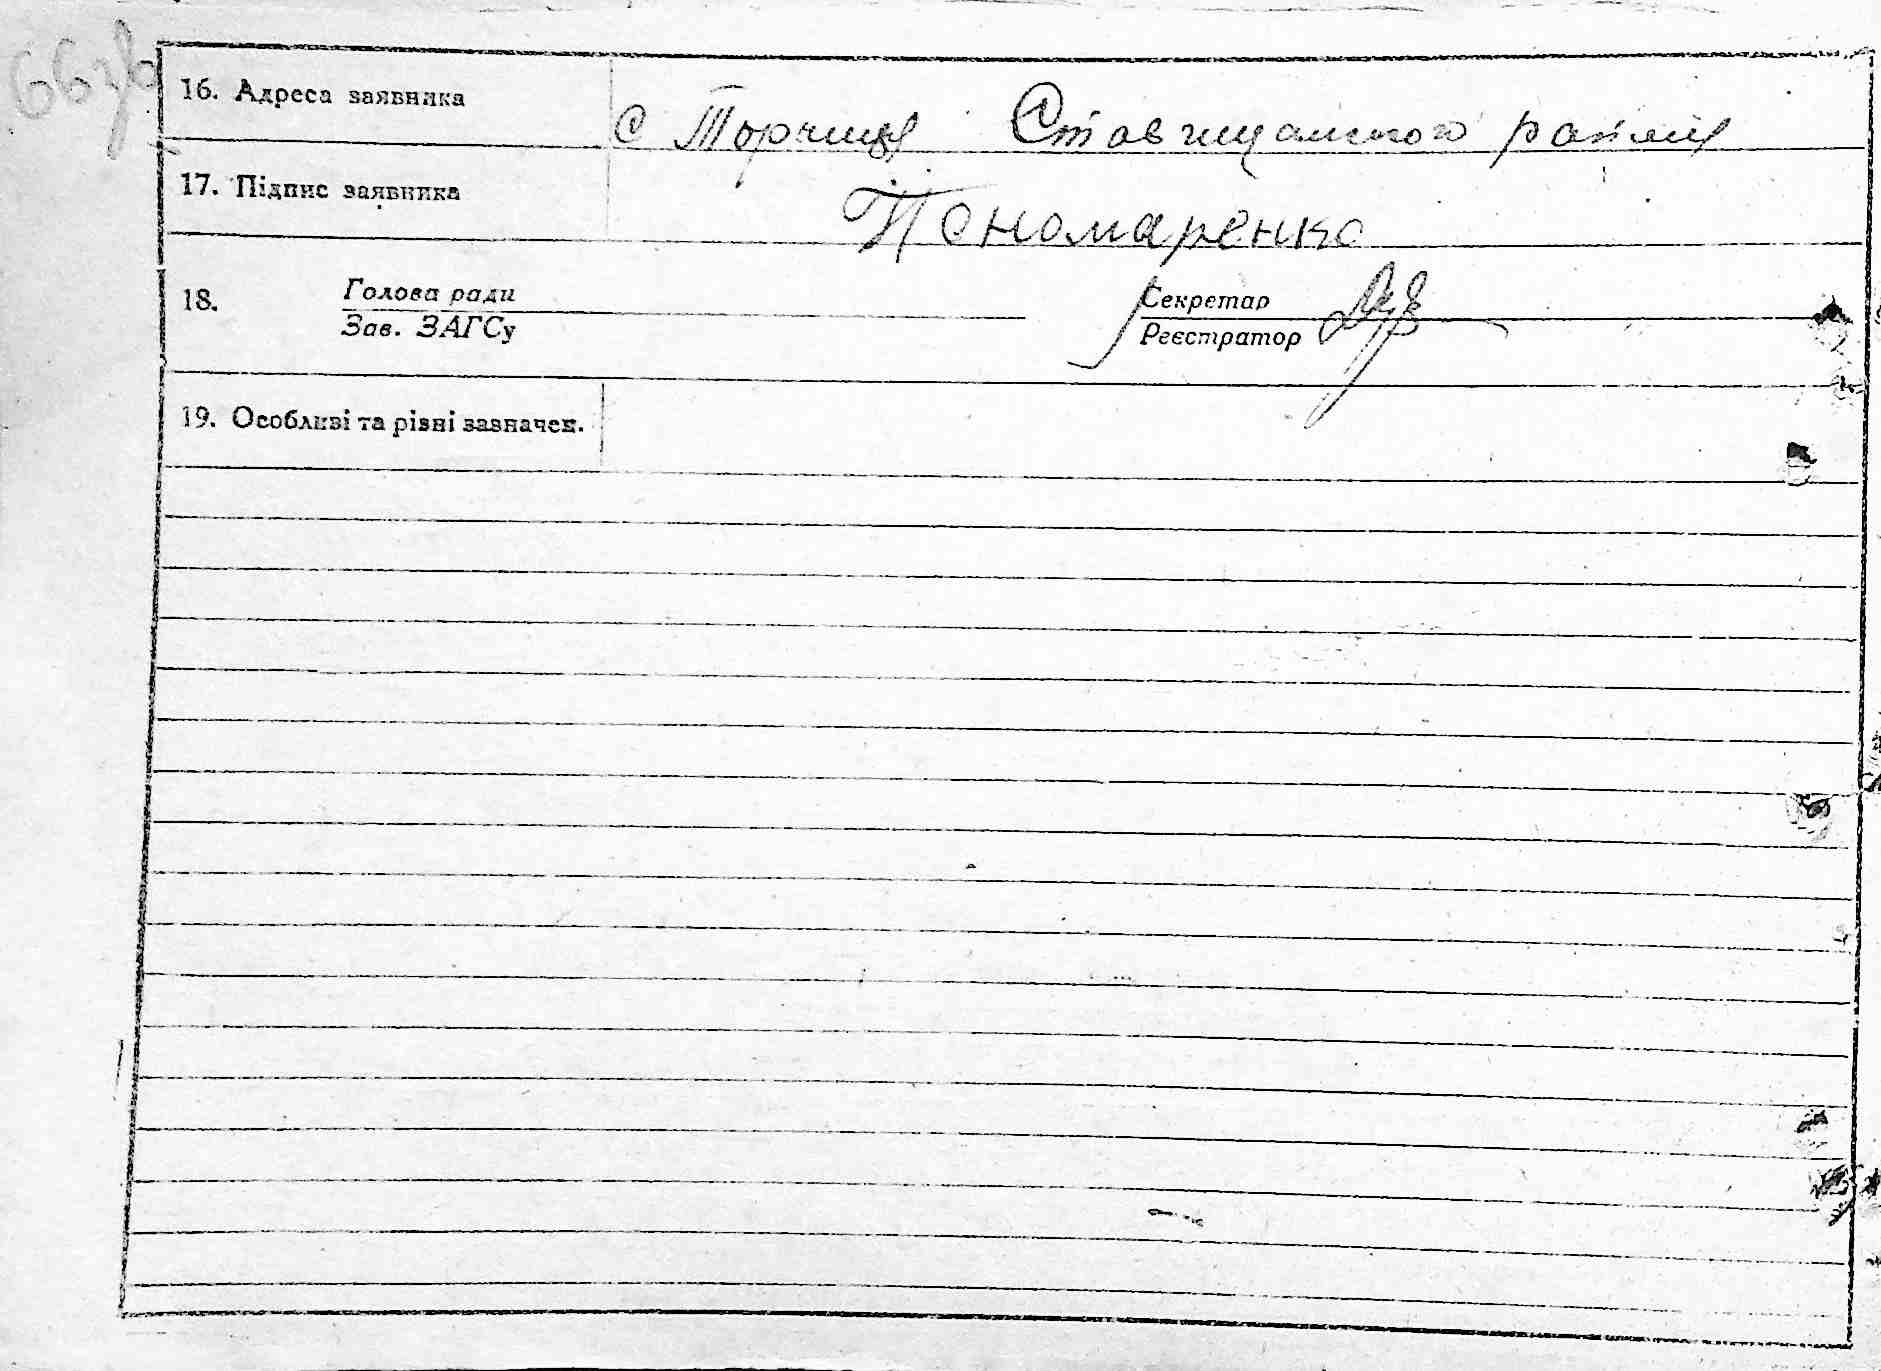 66зв
16. Адреса заявника
с Торчиця Ставищанского района
17. Підпис заявника
Пономаренко
18. Голова ради
Зав. ЗАГСу
Секретар
Реєстратор
19. Особливі та різні зазначен.